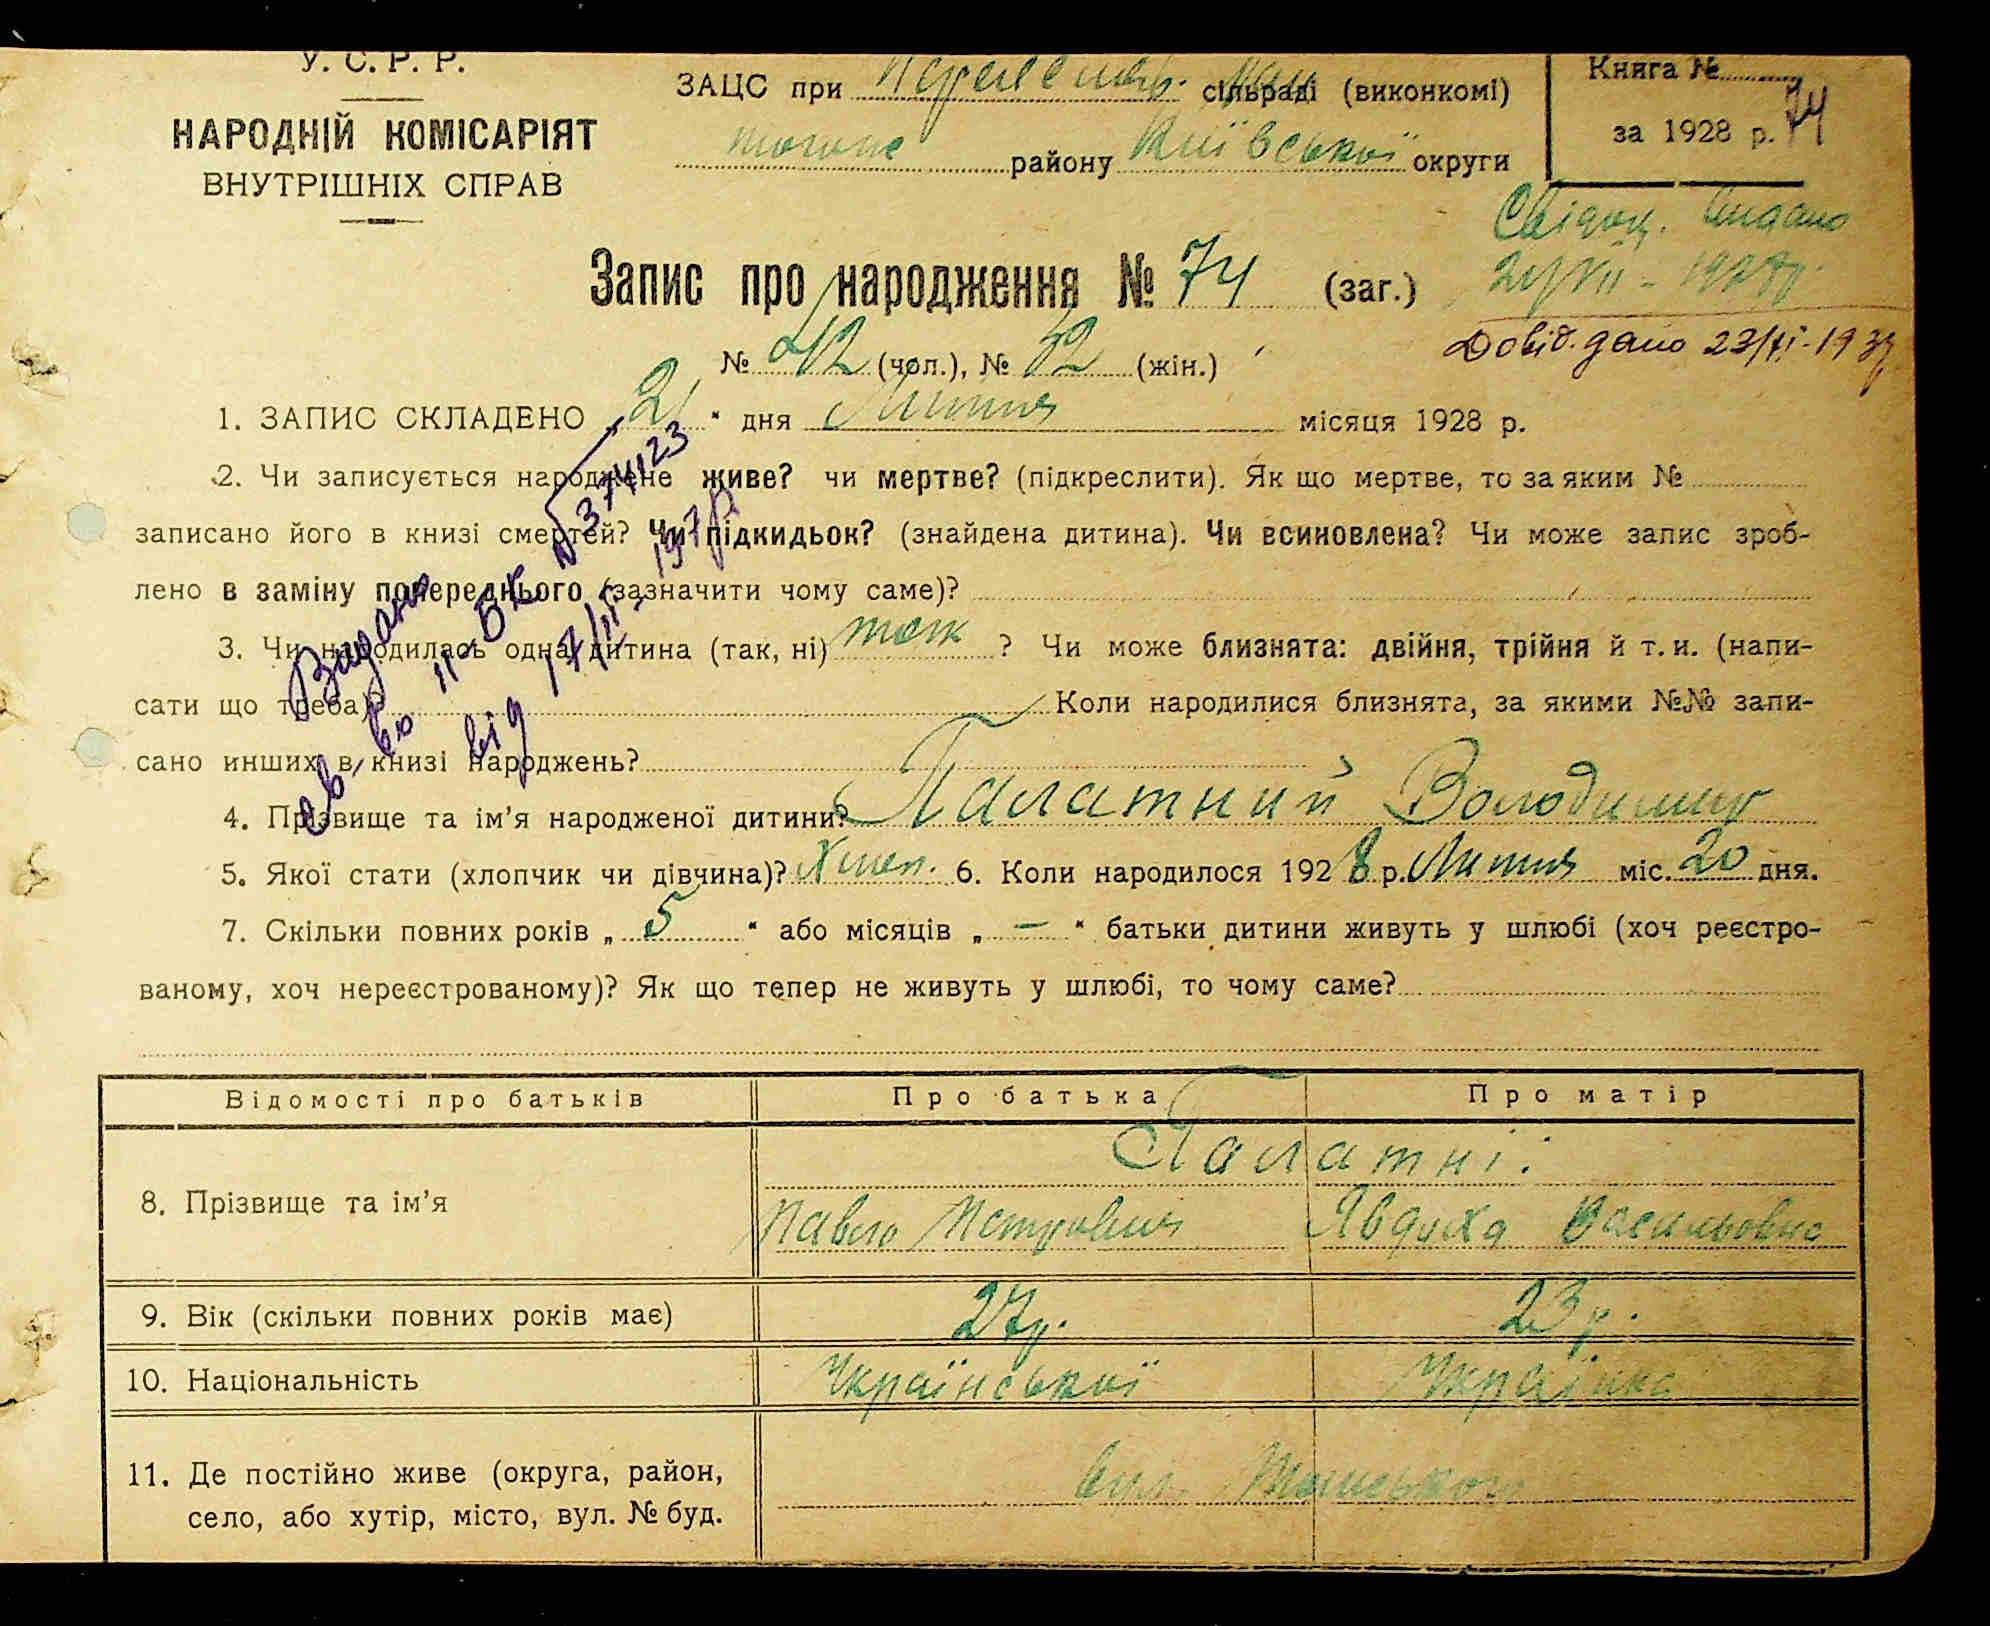 У. С. Р. Р.
НАРОДНІЙ КОМІСАРІЯТ
ВНУТРІШНІХ СПРАВ
ЗАЦС при сільраді (виконкомі)
району Київської округи
Книга №
за 1928 р. 74
Свідоц. видано
Довід. дано 23/VI-1937
Запис про народження № 74 (заг.)
№ 42 (чол.), № 32 (жін.)
1. ЗАПИС СКЛАДЕНО „21“ дня Липня місяця 1928 р.
2. Чи записується народжене живе? чи мертве? (підкреслити). Як що мертве, то за яким №
записано його в книзі смертей? Чи підкидьок? (знайдена дитина). Чи всиновлена? Чи може запис зроб-
лено в заміну попереднього (зазначити чому саме)?
3. Чи народилась одна дитина (так, ні) так ? Чи може близнята: двійня, трійня й т. и. (напи-
сати що треба)? Коли народилися близнята, за якими №№ запи-
сано инших в книзі народжень?
Видано
св-во II-БК № 374123
від 17/II-197 р.
4. Прізвище та ім’я народженої дитини? Палатний Володимир
5. Якої стати (хлопчик чи дівчина)? Хлоп. 6. Коли народилося 1928 р. Липня міс. 20 дня.
7. Скільки повних років „ 5 “ або місяців „ – “ батьки дитини живуть у шлюбі (хоч реєстро-
ваному, хоч нереєстрованому)? Як що тепер не живуть у шлюбі, то чому саме?
Відомості про батьків Про батька Про матір
Палатні:
8. Прізвище та ім’я Павло Петрович Явдоха Васильовна
9. Вік (скільки повних років має) 27р. 23р.
10. Національність Української Українка
11. Де постійно живе (округа, район,
село, або хутір, місто, вул. № буд.
вул.